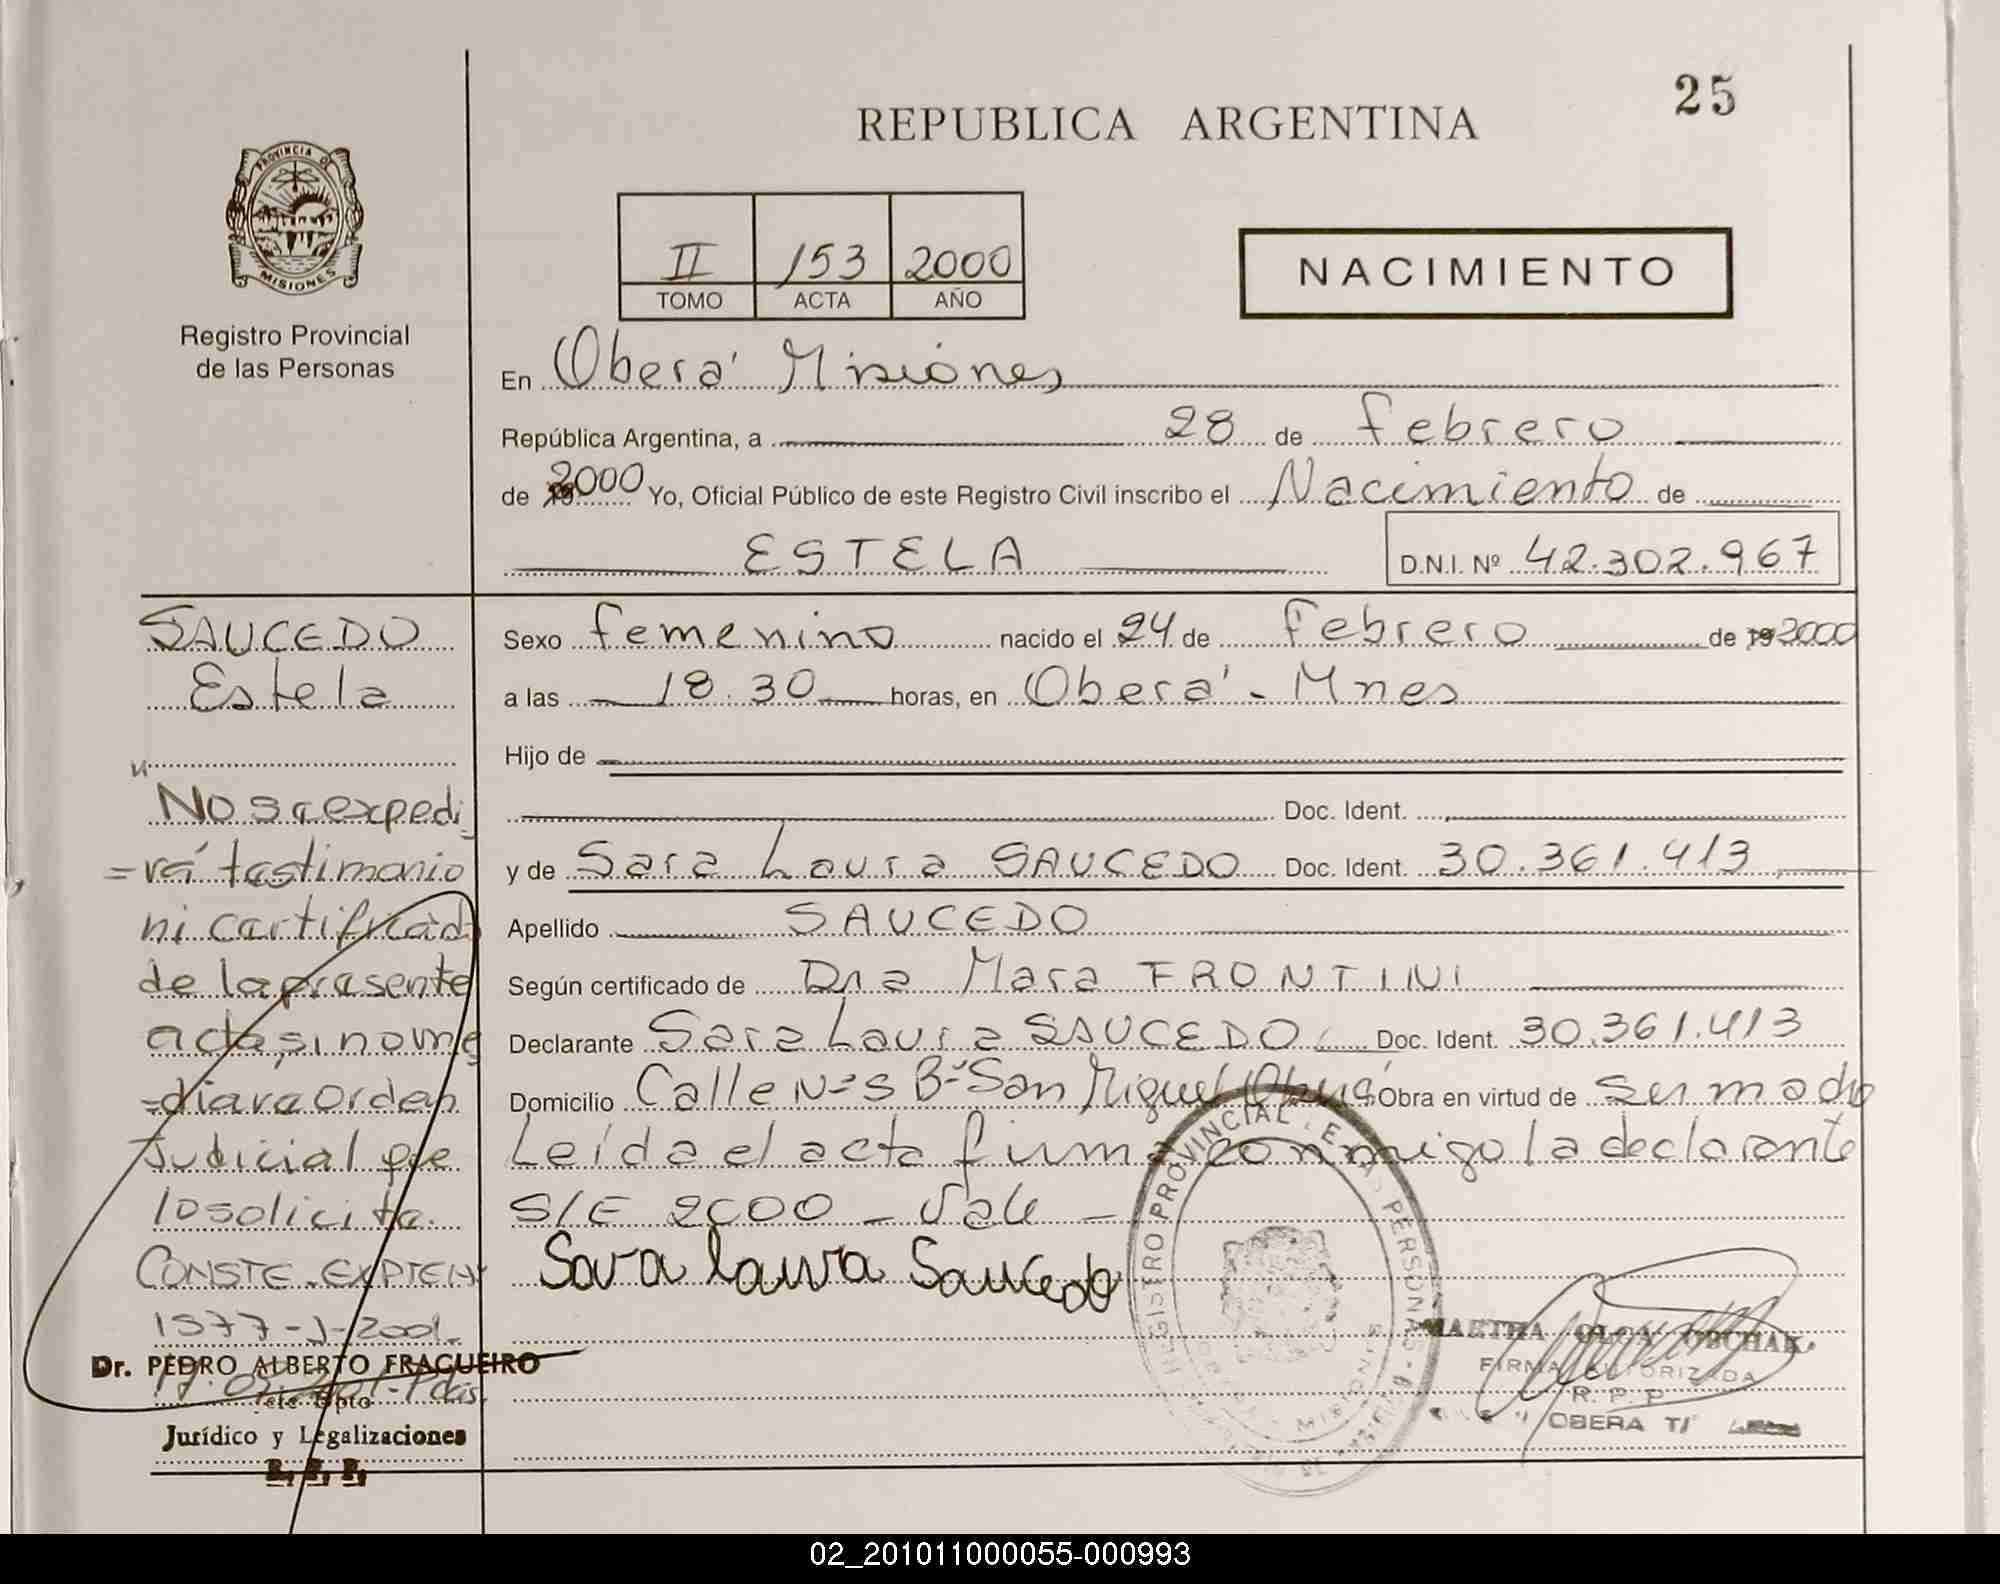 25
REPUBLICA ARGENTINA
PROVINCIA DE
MISIONES
Registro Provincial
de las Personas
II 153 2000
TOMO ACTA AÑO
NACIMIENTO
En Oberá Misiones
República Argentina, a 28 de Febrero
de 2000 Yo, Oficial Público de este Registro Civil inscribo el Nacimiento de
ESTELA
D.N.I. Nº 42.302.967
SAUCEDO
Estela
No se expedi
=rá testimonio
ni certificado
de la presente
acta, si no me
=diara orden
Judicial que
lo solicite.
CONSTE. EXPTE Nº
1577-J-2001.
Dr. PEDRO ALBERTO FRAGUEIRO
Jefe Dpto
Jurídico y Legalizaciones
R. P. P.
Sexo femenino nacido el 24 de Febrero de 19 2000
a las 18.30 horas, en Oberá - Mnes
Hijo de
Doc. Ident.
y de Sara Laura SAUCEDO Doc. Ident. 30.361.413
Apellido SAUCEDO
Según certificado de Dra Mara FRONTINI
Declarante Sara Laura SAUCEDO Doc. Ident. 30.361.413
Domicilio Calle Nº S Bº San Miguel Oberá Obra en virtud de ser madre
Leída el acta firma conmigo la declarante
S/E 2000 - Vale -
Sara laura Saucedo
REGISTRO PROVINCIAL DE LAS PERSONAS
MISIONES
MARTHA OLGA
FIRMA AUTORIZADA
R. P. P.
OBERA
02_201011000055-000993